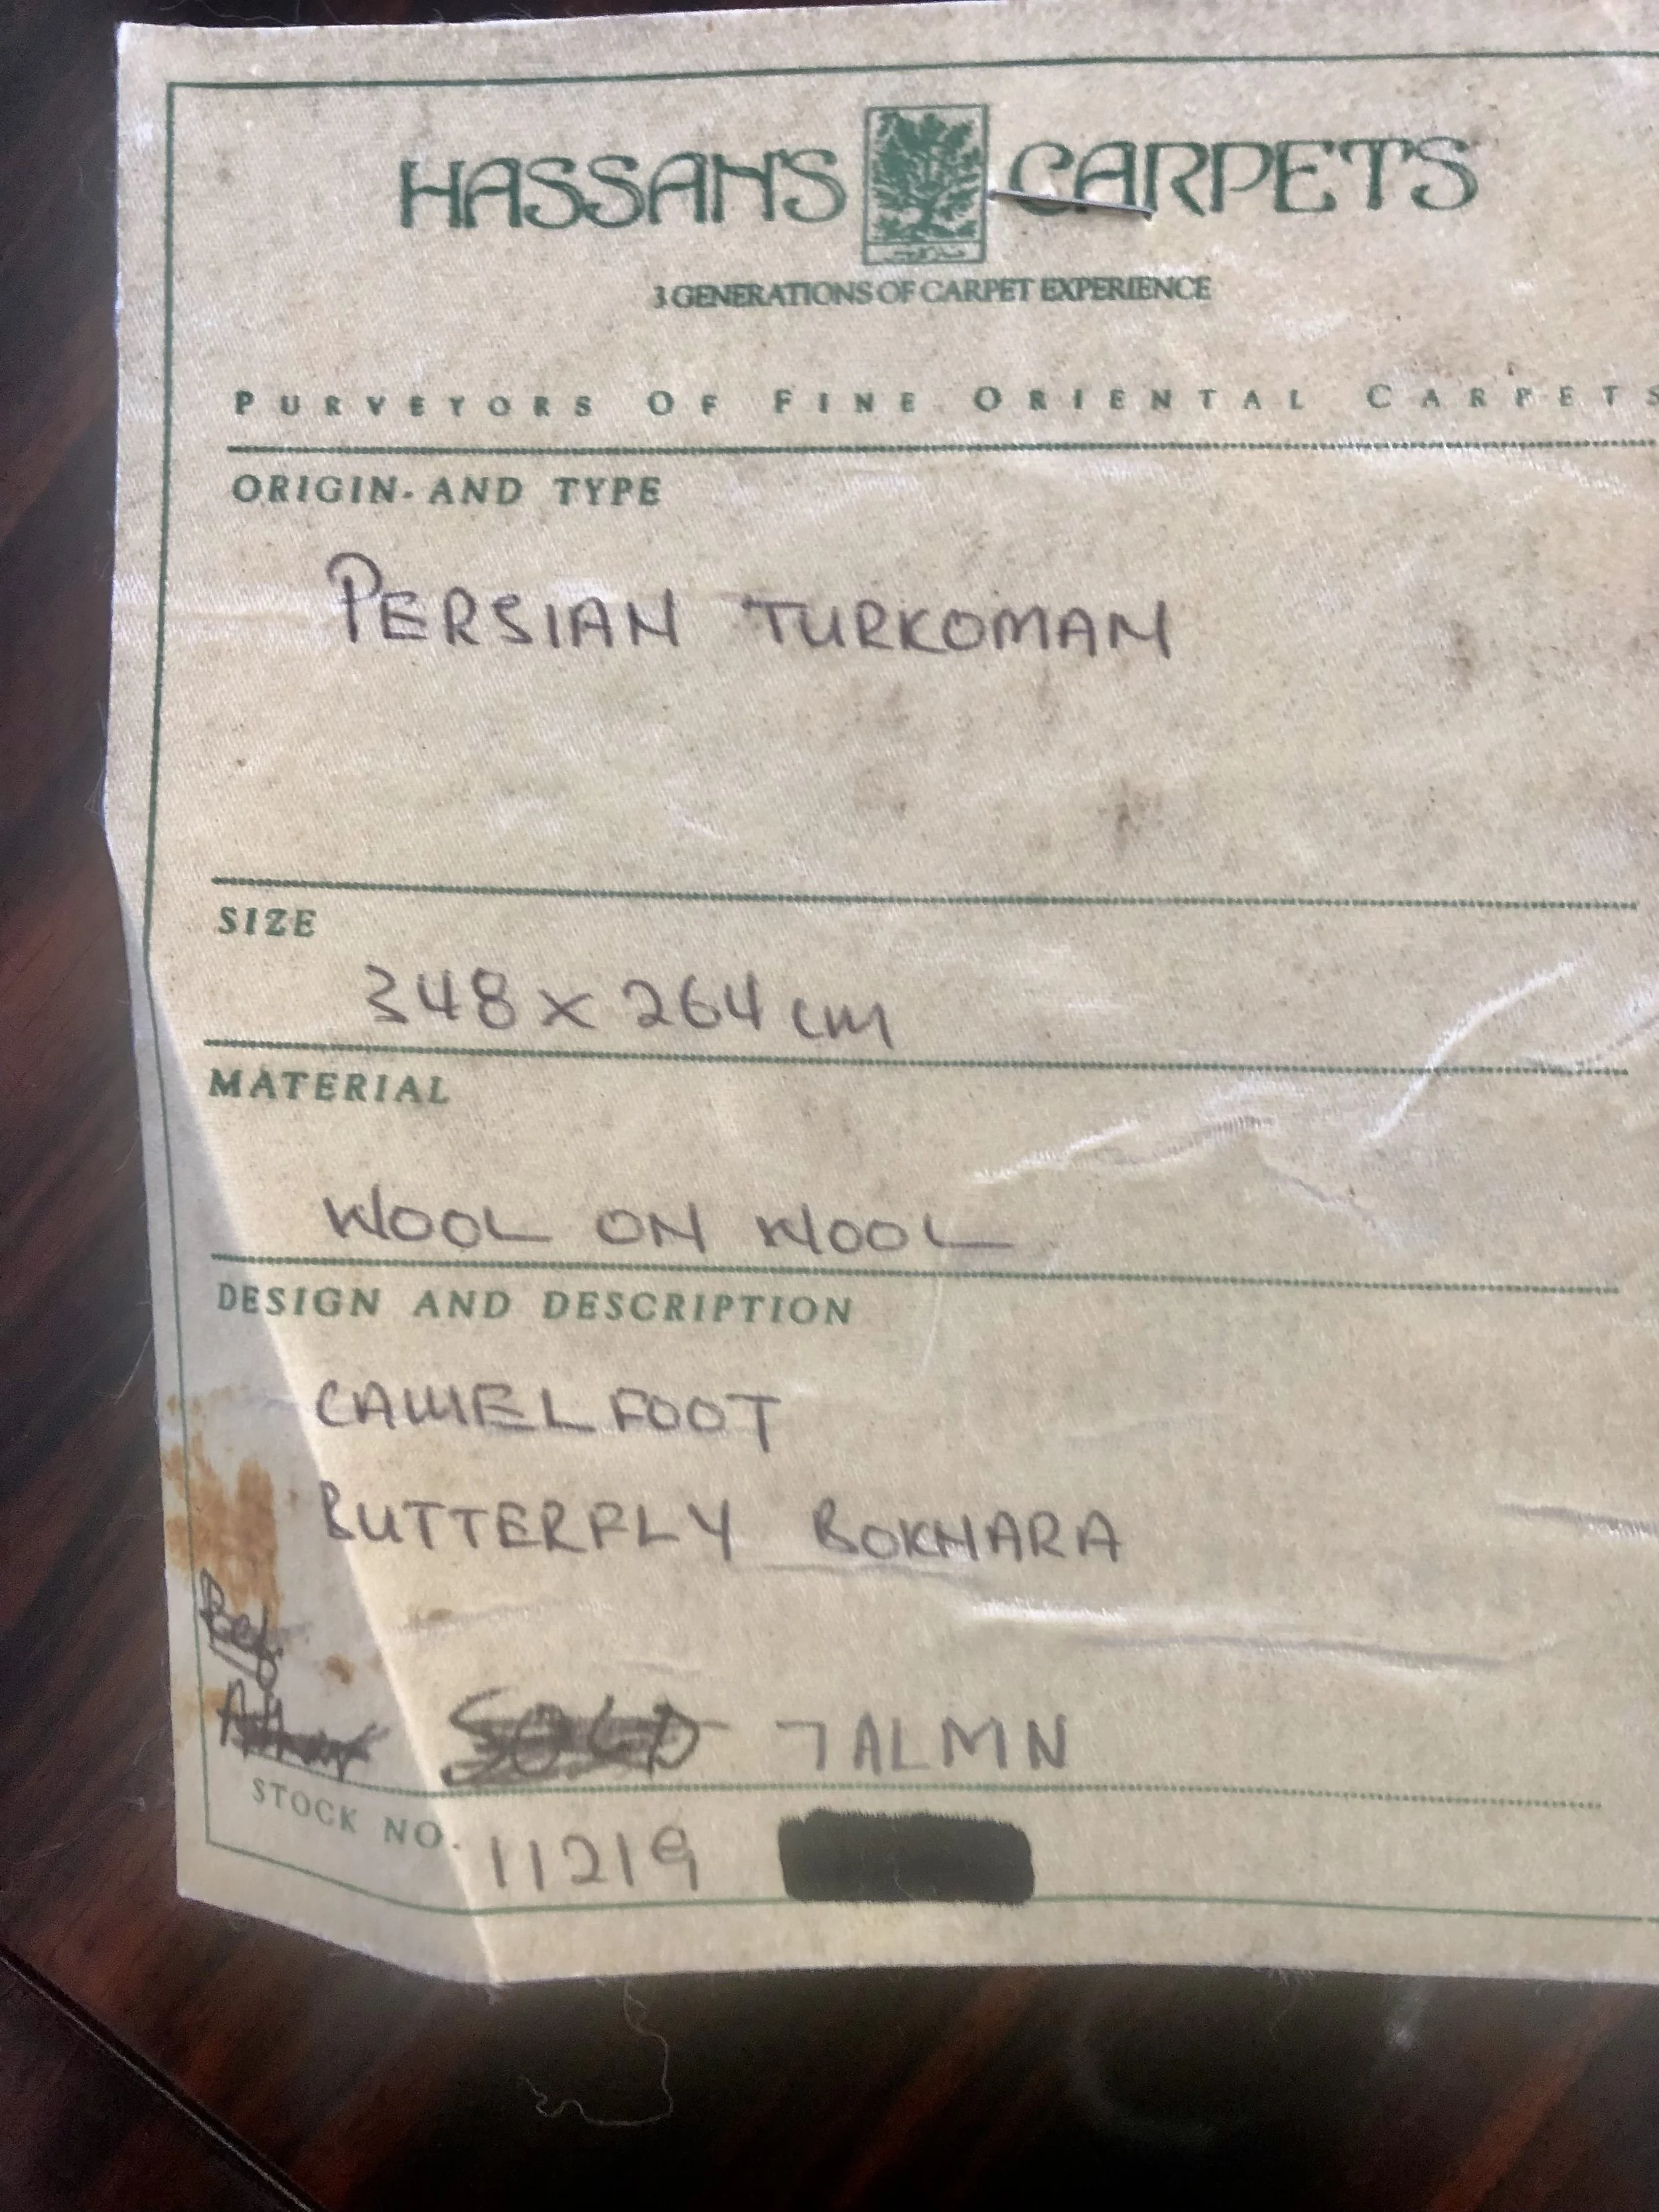 HASSAN'S CARPETS
3 GENERATIONS OF CARPET EXPERIENCE
PURVEYORS OF FINE ORIENTAL CARPETS
ORIGIN AND TYPE
PERSIAN TURKOMAN
SIZE
348 x 264 cm
MATERIAL
WOOL ON WOOL
DESIGN AND DESCRIPTION
CAMEL FOOT
BUTTERFLY BOKHARA
SOLD
STOCK NO. 11219